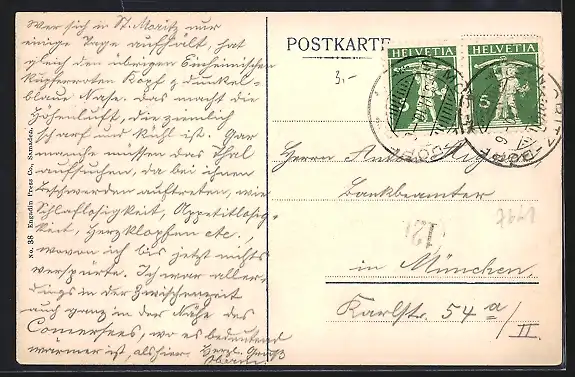 Wer sich in St. Moritz nur
einige Tage aufhält, hat
gleich den übrigen Einheimischen
kupferroten Kopf & dunkel-
blaue Nase. Das macht die
Höhenluft, die ziemlich
scharf und kühl ist. Gar
manche müssen das Thal
aufsuchen, da bei ihnen
Beschwerden auftreten, wie
Schlaflosigkeit, Appetitlosig-
keit, Herzklopfen etc.,
wovon ich bis jetzt nichts
verspürte. Ich war aller-
dings in der Zwischenzeit
auch ganz in der Nähe des
Comersees, wo es bedeutend
wärmer ist, als hier. Herzl. Gruß
No. 38 Engadin Press Co., Samaden.
POSTKARTE
3.-
HELVETIA
5
HELVETIA
5
ST. MORITZ-DORF
Herrn Anton
Bankbeamter
in München
Karlstr. 54 a/II.